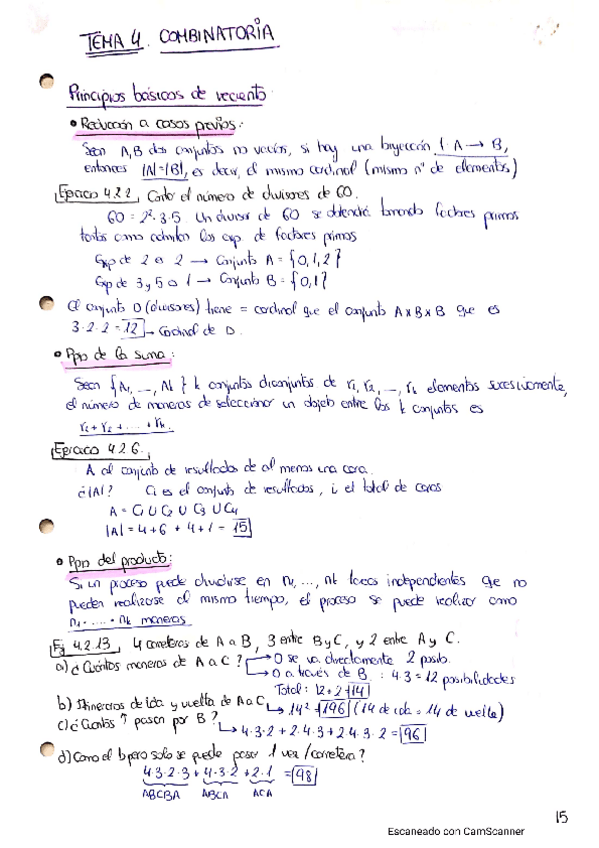 TEMA 4. COMBINATORIA
Principios básicos de recuento
• Reducción a casos previos:
Sean A, B dos conjuntos no vacíos, si hay una biyección f: A → B,
entonces |A|=|B|, es decir, el mismo cardinal (mismo nº de elementos)
Ejercicio 4.2.2. Conto el número de divisores de 60.
60 = 2²·3·5. Un divisor de 60 se obtendrá tomando factores primos
tantos como admitan los exp. de factores primos
Exp de 2 a 2 → Conjunto A = {0,1,2}
Exp de 3 y 5 a 1 → Conjunto B = {0,1}
El conjunto D (divisores) tiene = cardinal que el conjunto A×B×B que es
3·2·2 = 12 → Cardinal de D.
• Ppio de la suma:
Sean {A₁, ..., Ak} k conjuntos disconjuntos de r₁, r₂, ..., rk elementos sucesivamente,
el número de maneras de seleccionar un objeto entre los k conjuntos es
r₁ + r₂ + ... + rk.
Ejercicio 4.2.6.
A al conjunto de resultados de al menos una cara.
¿|A|? Ci es el conjunto de resultados, i el total de caras
A = C₁ U C₂ U C₃ U C₄
|A| = 4 + 6 + 4 + 1 = 15
• Ppio del producto:
Si un proceso puede dividirse en n₁, ..., nk tareas independientes que no
pueden realizarse al mismo tiempo, el proceso se puede realizar como
n₁ · ... · nk maneras
Ej 4.2.13. 4 carreteras de A a B, 3 entre B y C, y 2 entre A y C.
a) ¿Cuántas maneras de A a C? → O se va directamente 2 posib.
→ O a través de B : 4·3 = 12 posibilidades
Total: 12 + 2 = 14
b) Itinerarios de ida y vuelta de A a C → 14² = 196 (14 de ida = 14 de vuelta)
c) ¿Cuántos ↑ pasan por B?
→ 4·3·2 + 2·4·3 + 2·4·3·2 = 96
d) Como el b pero solo se puede pasar 1 vez/carretera?
4·3·2·3 + 4·3·2 + 2·1 = 98
ABCBA ABCA ACA
15
Escaneado con CamScanner